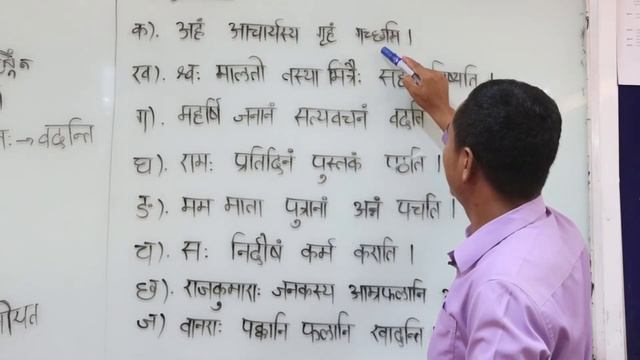 क). अहं आचार्यस्य गृहं गच्छामि ।
ख). श्वः मालतो तस्या मित्रैः
ग). महर्षि जनानं सत्यवचनं
घ). रामः प्रतिदिनं पुस्तकं पठति ।
ङ). मम माता पुत्रानां अन्नं पचति ।
च). सः निर्दोषं कर्म कराति ।
छ). राजकुमाराः जनकस्य आम्रफलानि
ज). वानराः पक्वानि फलानि खादन्ति
→ वदन्ति